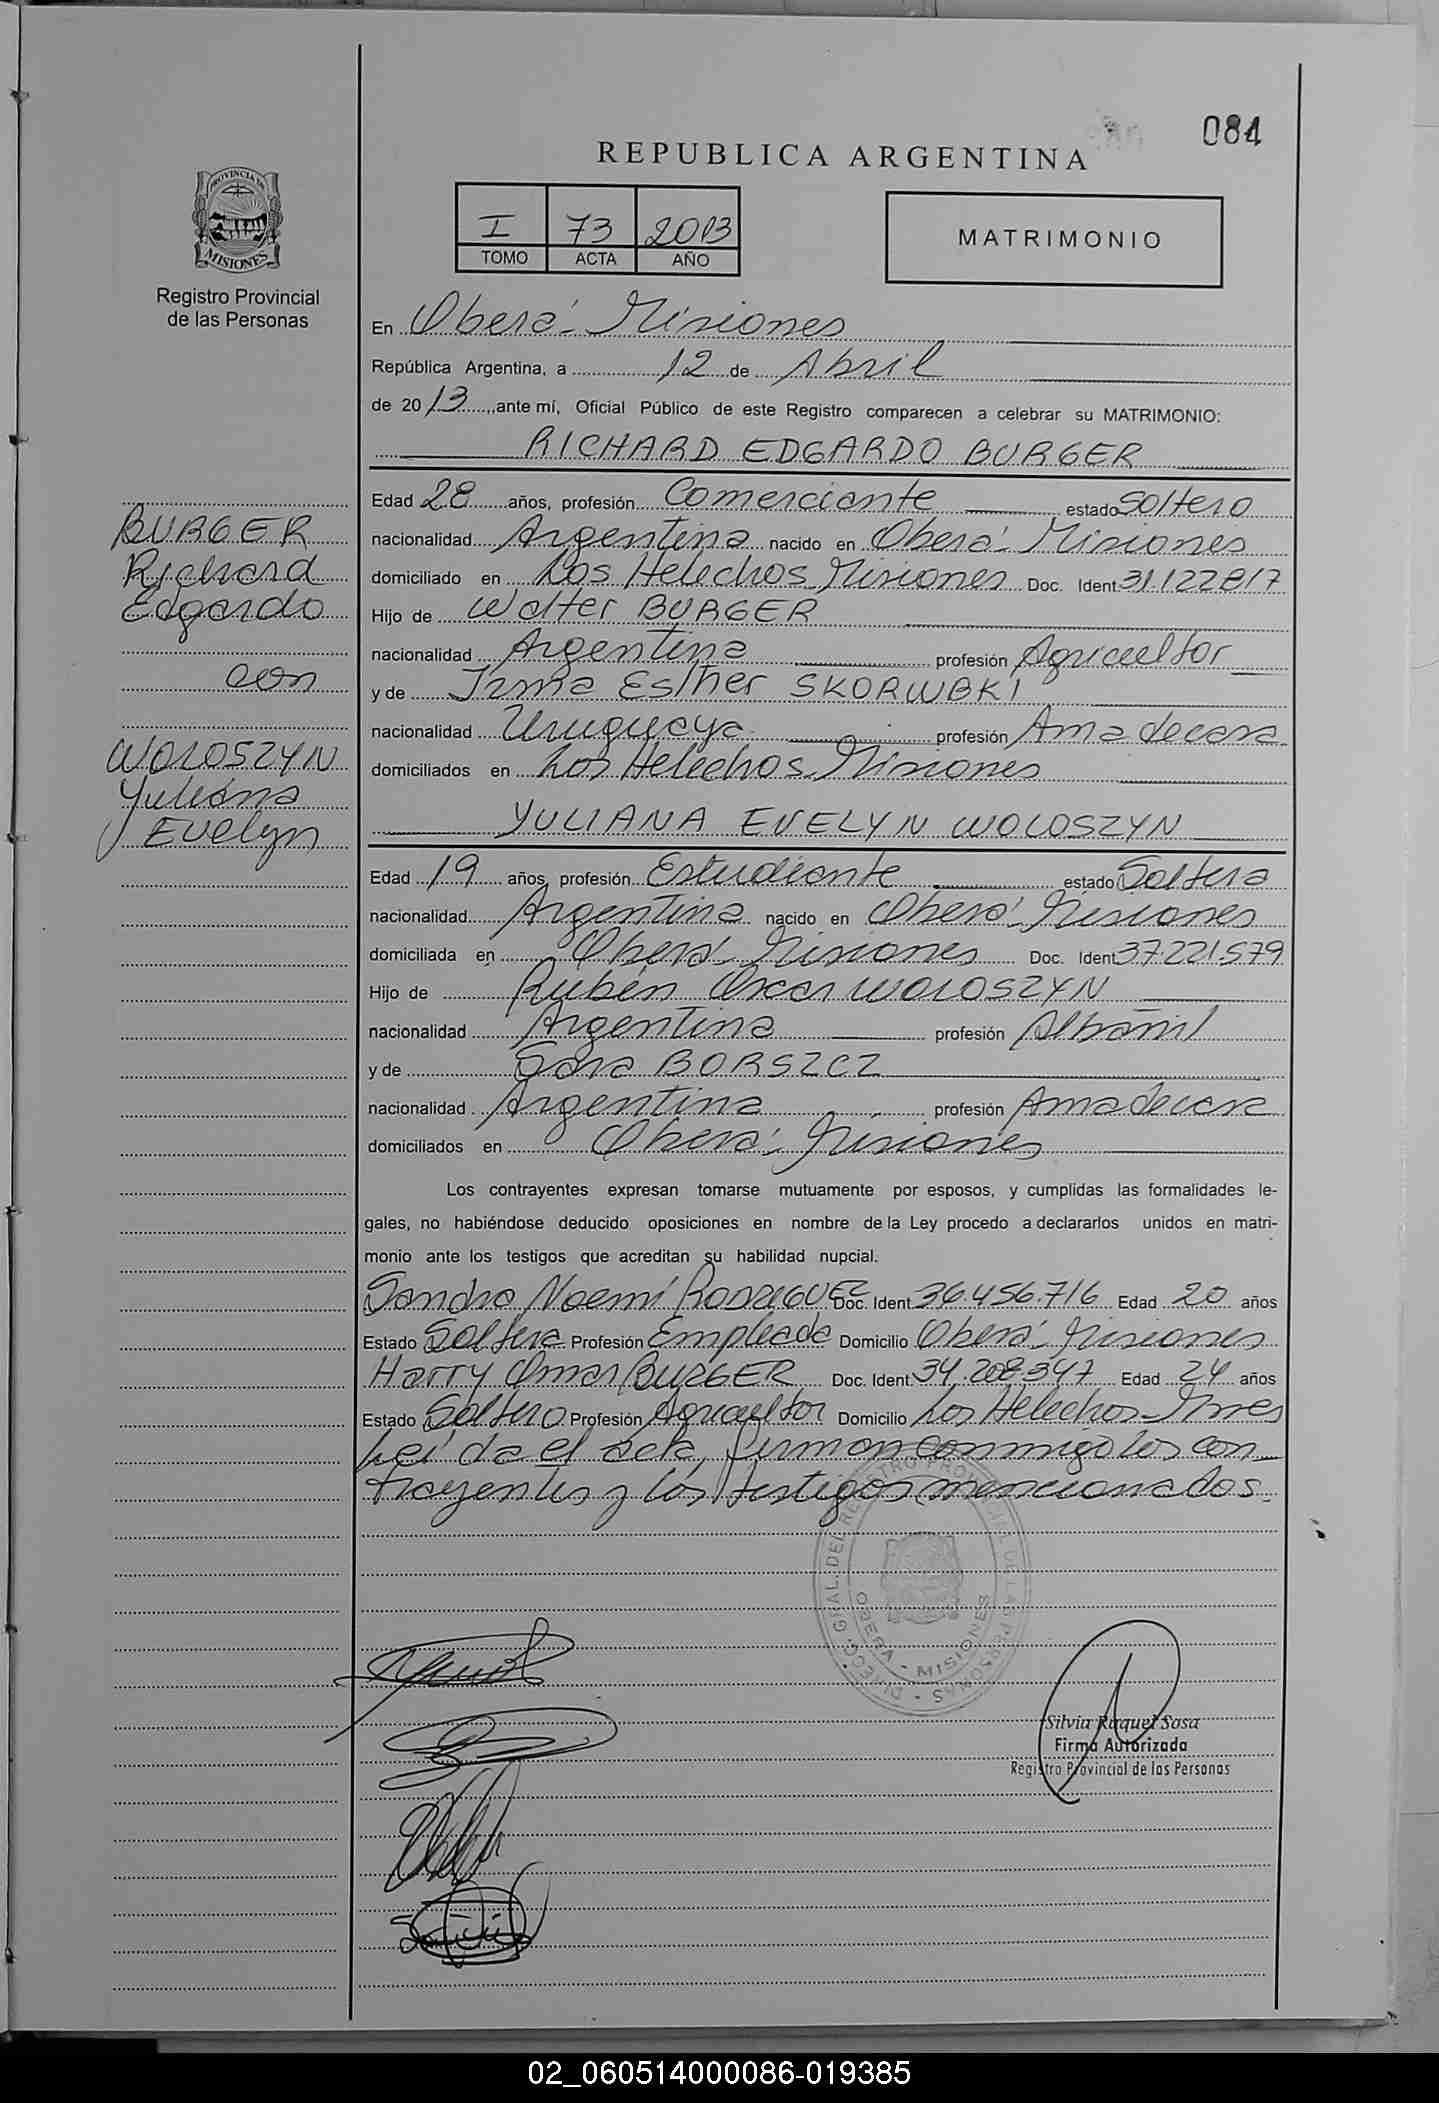 084
REPUBLICA ARGENTINA
PROVINCIA DE
MISIONES
Registro Provincial
de las Personas
I 73 2013
TOMO ACTA AÑO
MATRIMONIO
En Oberá - Misiones
República Argentina, a 12 de Abril
de 2013, ante mí, Oficial Público de este Registro comparecen a celebrar su MATRIMONIO:
RICHARD EDGARDO BURGER
Edad 28 años, profesión Comerciante estado Soltero
nacionalidad Argentina nacido en Oberá - Misiones
domiciliado en Los Helechos Misiones Doc. Ident 31.122.817
Hijo de Walter BURGER
nacionalidad Argentina profesión Agricultor
y de Irma Esther SKORWBKI
nacionalidad Uruguaya profesión Ama de casa
domiciliados en Los Helechos - Misiones
BURGER
Richard
Edgardo
con
WOLOSZYN
Yuliana
Evelyn
YULIANA EVELYN WOLOSZYN
Edad 19 años, profesión Estudiante estado Soltera
nacionalidad Argentina nacido en Oberá - Misiones
domiciliada en Oberá - Misiones Doc. Ident 37.221.579
Hijo de Rubén Oscar WOLOSZYN
nacionalidad Argentina profesión Albañil
y de Sara BORSZCZ
nacionalidad Argentina profesión Ama de casa
domiciliados en Oberá - Misiones
Los contrayentes expresan tomarse mutuamente por esposos, y cumplidas las formalidades le-
gales, no habiéndose deducido oposiciones en nombre de la Ley procedo a declararlos unidos en matri-
monio ante los testigos que acreditan su habilidad nupcial.
Sandra Noemí RODRIGUEZ Doc. Ident 36.456.716 Edad 20 años
Estado Soltera Profesión Empleada Domicilio Oberá - Misiones
Harry Omar BURGER Doc. Ident 34.208.347 Edad 24 años
Estado Soltero Profesión Agricultor Domicilio Los Helechos - Mnes
Leída el acta, firman conmigo los con_
trayentes y los testigos mencionados.
DIRECC. GRAL. DEL REGISTRO PROVINCIAL DE LAS PERSONAS
OBERA - MISIONES
Silvia Raquel Sosa
Firma Autorizada
Registro Provincial de las Personas
02_060514000086-019385